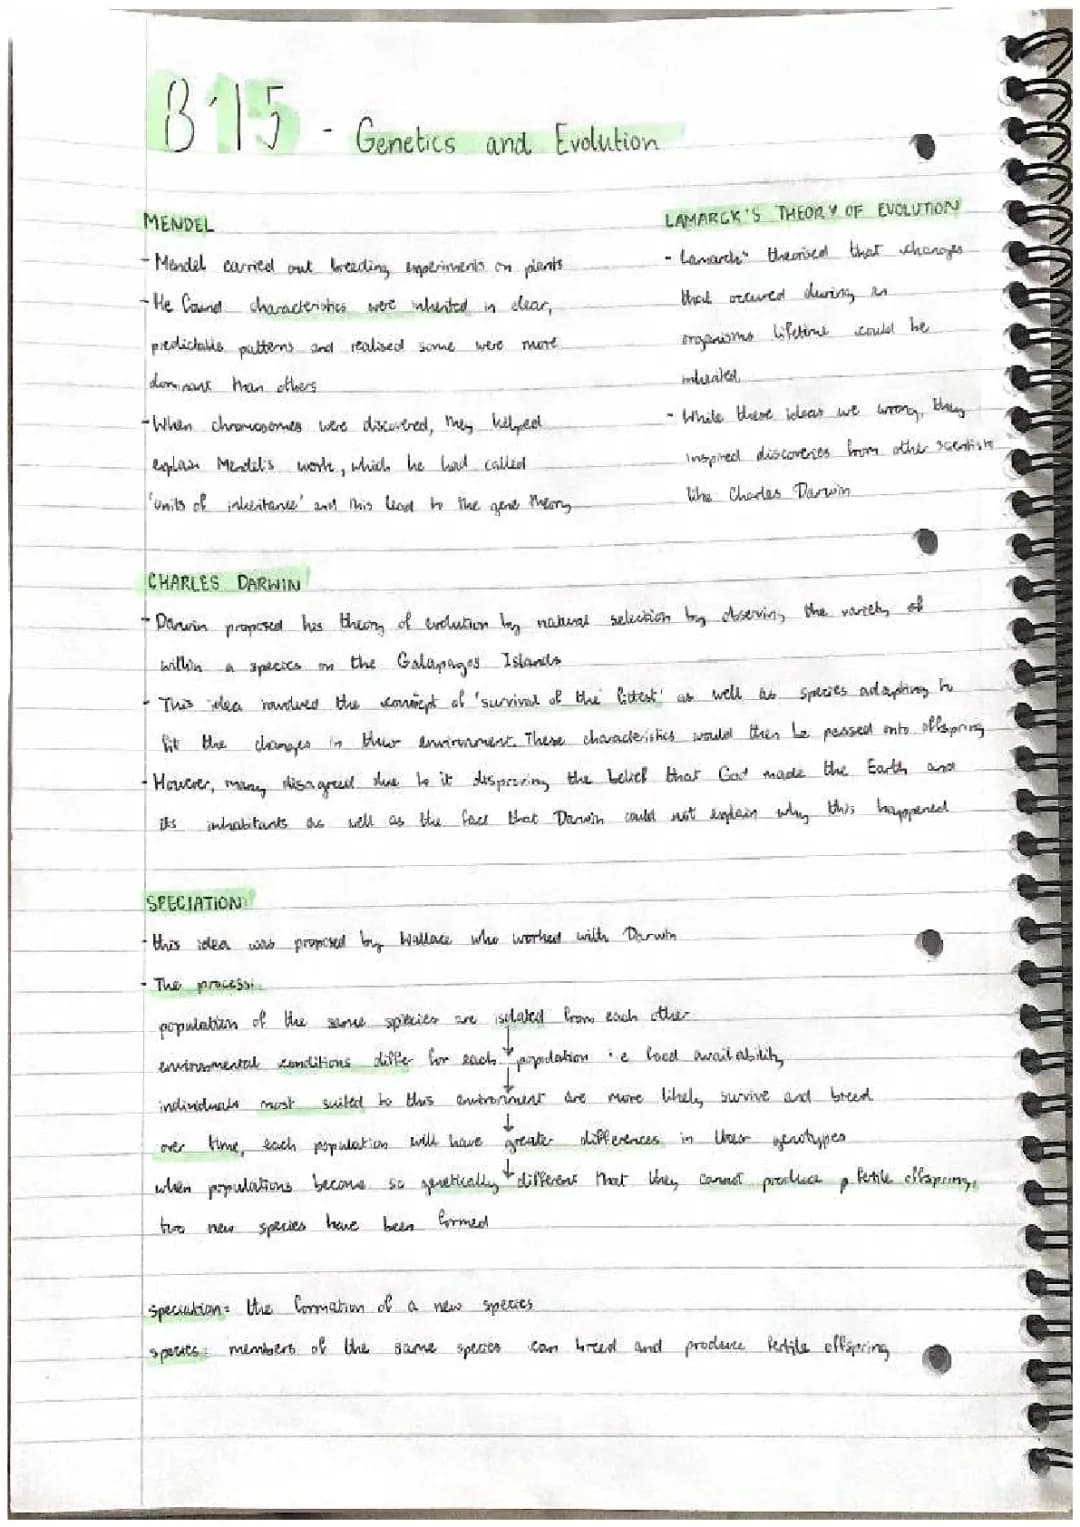 B15 - Genetics and Evolution
MENDEL
- Mendel carried out breeding experiments on plants
- He found characteristics were inherited in clear,
predictable patterns and realised some were more
dominant than others
- When chromosomes were discovered, they helped
explain Mendel's work, which he had called
'units of inheritance' and this lead to the gene theory
LAMARCK'S THEORY OF EVOLUTION
- Lamarck theorised that changes
that occured during an
organisms lifetime could be
inherited.
- While these ideas we wrong, they
inspired discoveries from other scientists
like Charles Darwin
CHARLES DARWIN
- Darwin proposed his theory of evolution by natural selection by observing the variety of
within a species on the Galapagos Islands
- This idea involved the concept of 'survival of the fittest' as well as species adapting to
fit the changes in their environment. These characteristics would then be passed onto offspring
- However, many disagreed due to it disproving the belief that God made the Earth and
its inhabitants as well as the fact that Darwin could not explain why this happened
SPECIATION
- this idea was proposed by Wallace who worked with Darwin
- The process:
population of the same species are isolated from each other
↓
environmental conditions differ for each population i.e food availability
↓
individuals most suited to this environment are more likely survive and breed
↓
over time, each population will have greater differences in their genotypes
↓
when populations become so genetically different that they cannot produce fertile offspring,
two new species have been formed
speciation: the formation of a new species
species: members of the same species can breed and produce fertile offspring